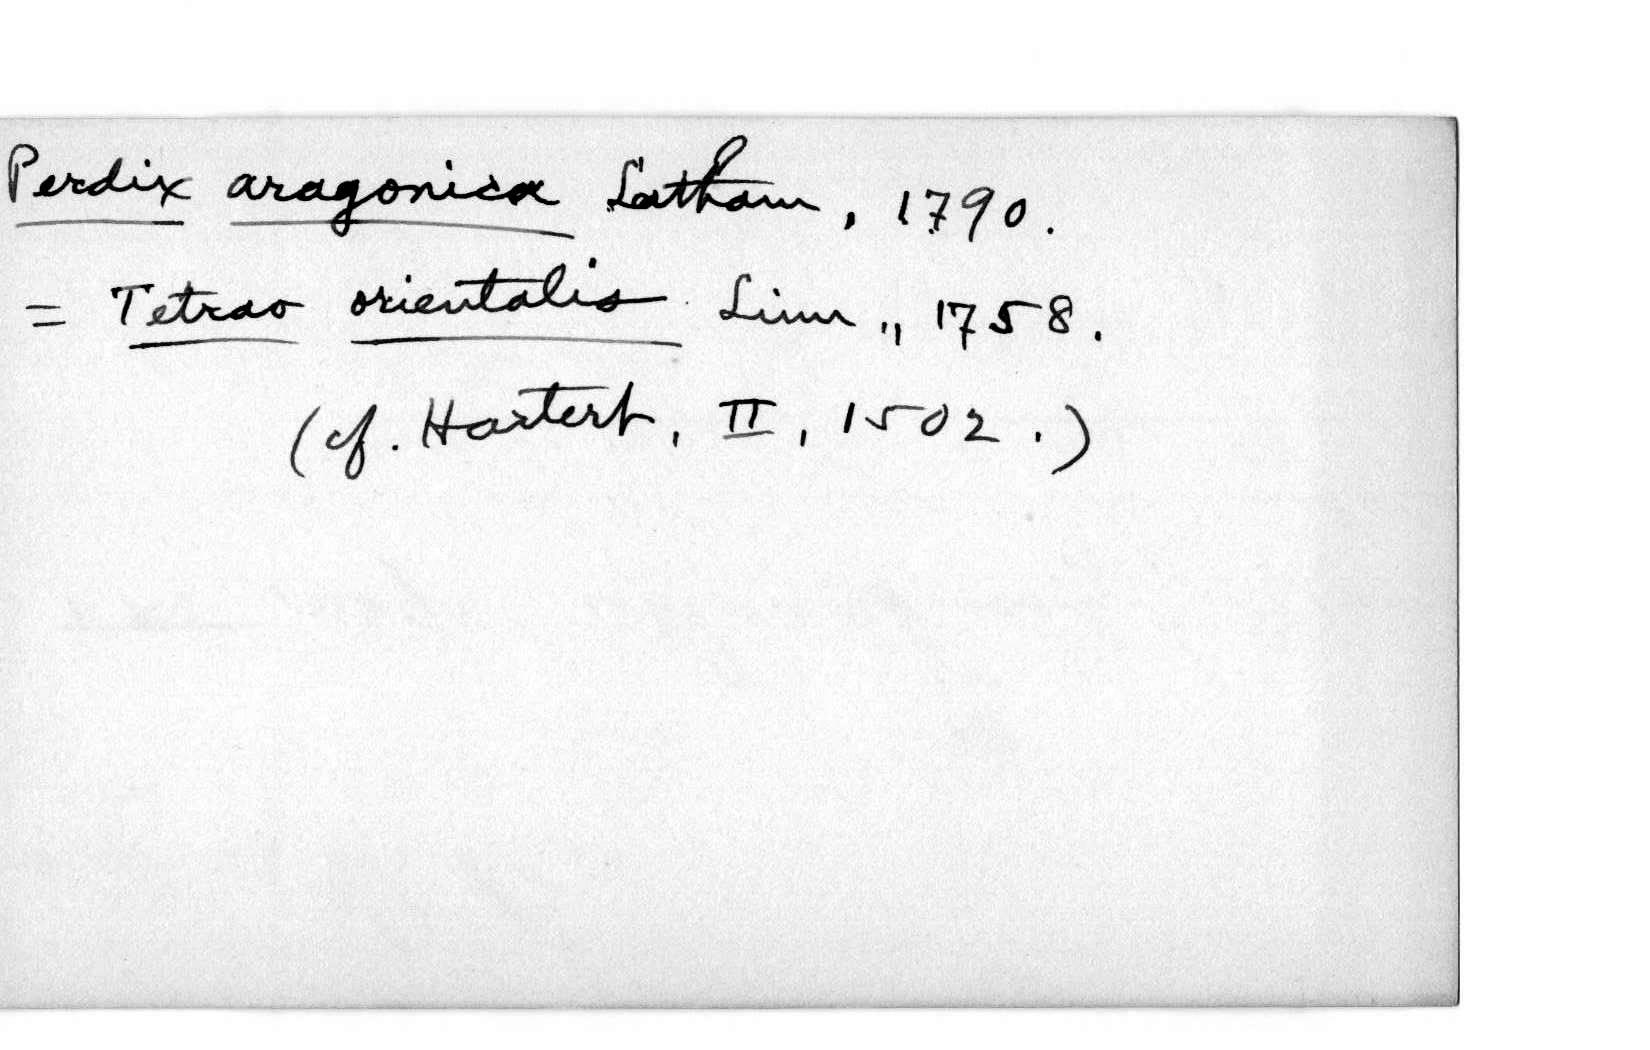 Perdix aragonica Latham, 1790.
= Tetrao orientalis Linn., 1758.
(cf. Hartert, II, 1502.)